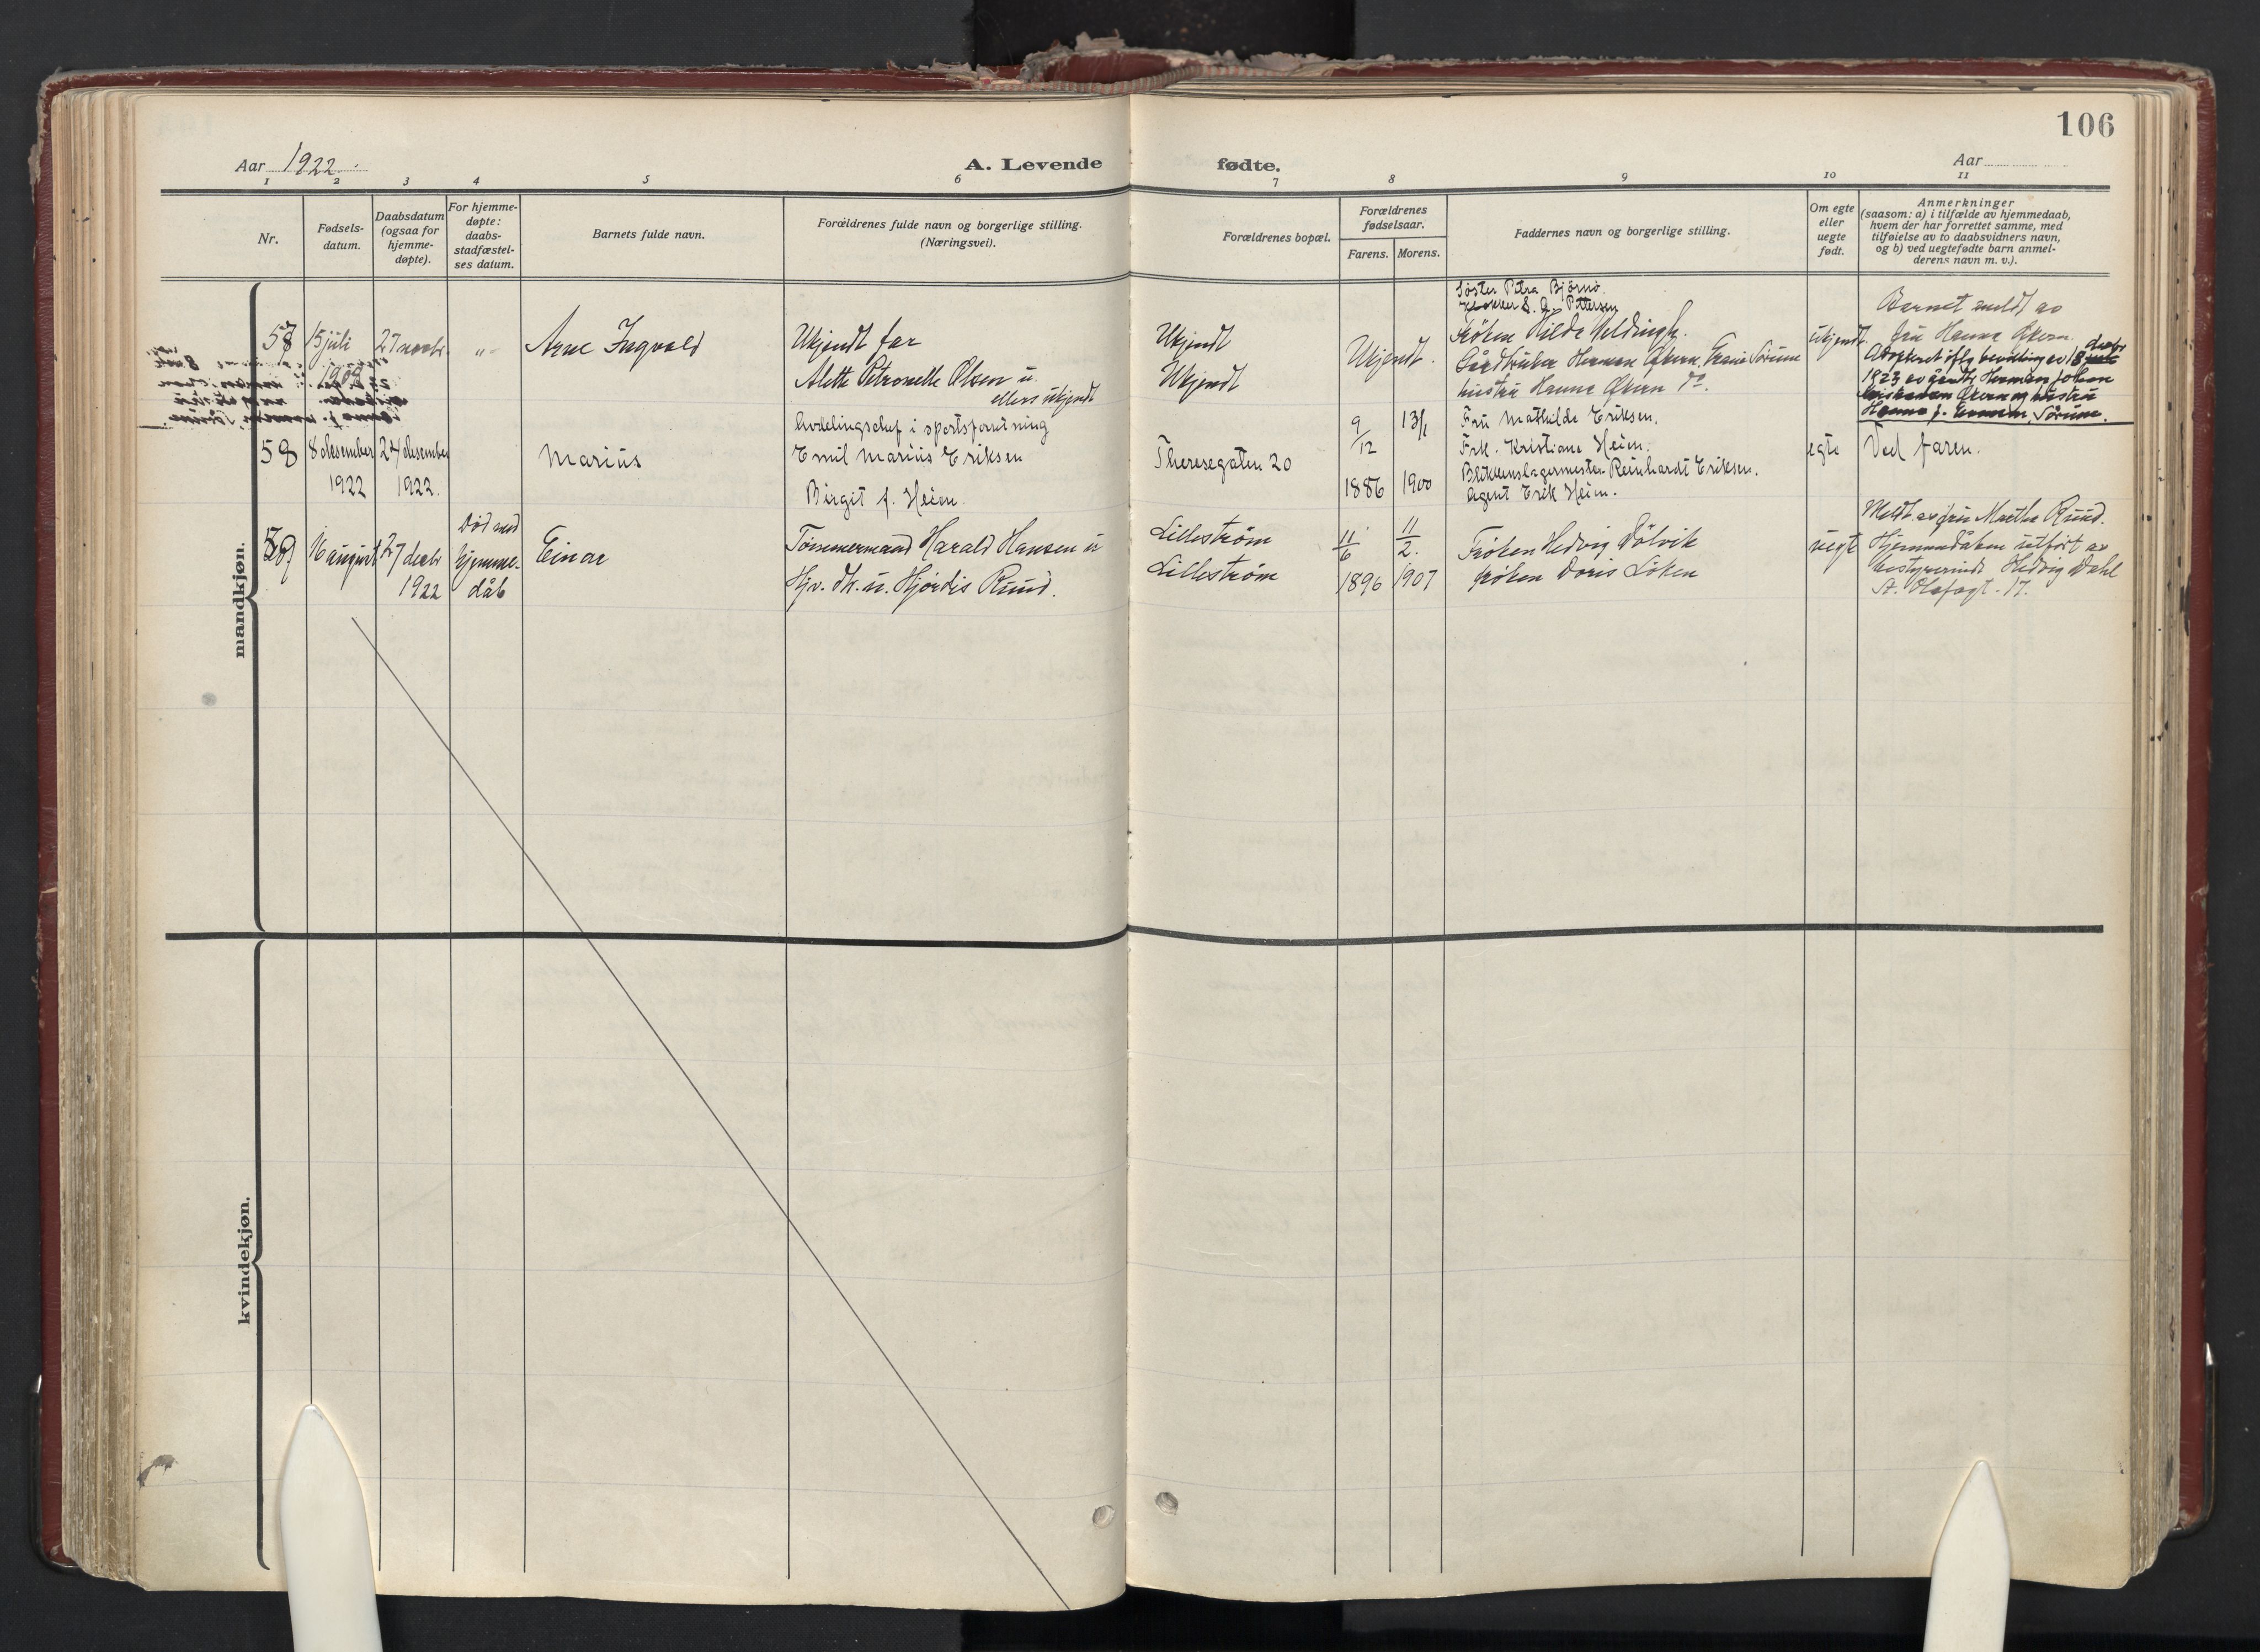 106
Aar 1922.
A. Levende
fødte.
Aar
1 2 3 4 5 6 7 8 9 10 11
Nr.
Fødsels-
datum.
Daabsdatum
(ogsaa for
hjemme-
døpte).
For hjemme-
døpte:
daabs-
stadfæstel-
ses datum.
Barnets fulde navn.
Forældrenes fulde navn og borgerlige stilling.
(Næringsvei).
Forældrenes bopæl.
Forældrenes
fødselsaar.
Farens. Morens.
Faddernes navn og borgerlige stilling.
Om egte
eller
uegte
født.
Anmerkninger
(saasom: a) i tilfælde av hjemmedaab,
hvem der har forrettet samme, med
tilføielse av to daabsvidners navn,
og b) ved uegtefødte barn anmel-
derens navn m. v.).
mandkjøn.
57
15 juli
1909
27 novbr.
"
Arne Ingvald
Ukjendt far
Alette Petronelle Olsen u.
ellers ukjendt
Ukjendt
Ukjendt
Ukjendt.
Søster Petra Bjørnø.
Klokker S. A. Pettersen
Frøken Hilde
Gårdbruker Herman Økern, Sørum
hustru Hanna Økern do.
ukjendt.
Barnet meldt av
fru Hanna Økern.
Adopteret iflg. bevilling av 18
1923 av gårdb. Herman Johan
Økern og hustru
Hanna f. Sørum.
58
8 desember
1922
24 desember
1922.
Marius
Avdelingschef i sportsforretning
Emil Marius Eriksen
Birgit f. Heim.
Theresegaten 20
9/12
1886
13/1
1900
Fru Mathilde Eriksen.
Frk. Kristiane Heim.
Blikkenslagermester Reinhardt Eriksen.
Agent Erik Heim.
egte
Ved faren.
59
16 august
27 decbr
1922
Død med
hjemme-
dåb
Einar
Tømmermand Harald Hansen u
Hj. dt. u. Hjørdis Ruud.
Lillestrøm
Lillestrøm
11/6
1896
11/2.
1907
Frøken Hedvig Dølvik
Frøken Doris Løken
uegte
Meldt av fru Marthe Ruud.
Hjemmedåben utført av
bestyrerinde Hedvig Dahl
St. Olafsgt. 17.
kvindekjøn.